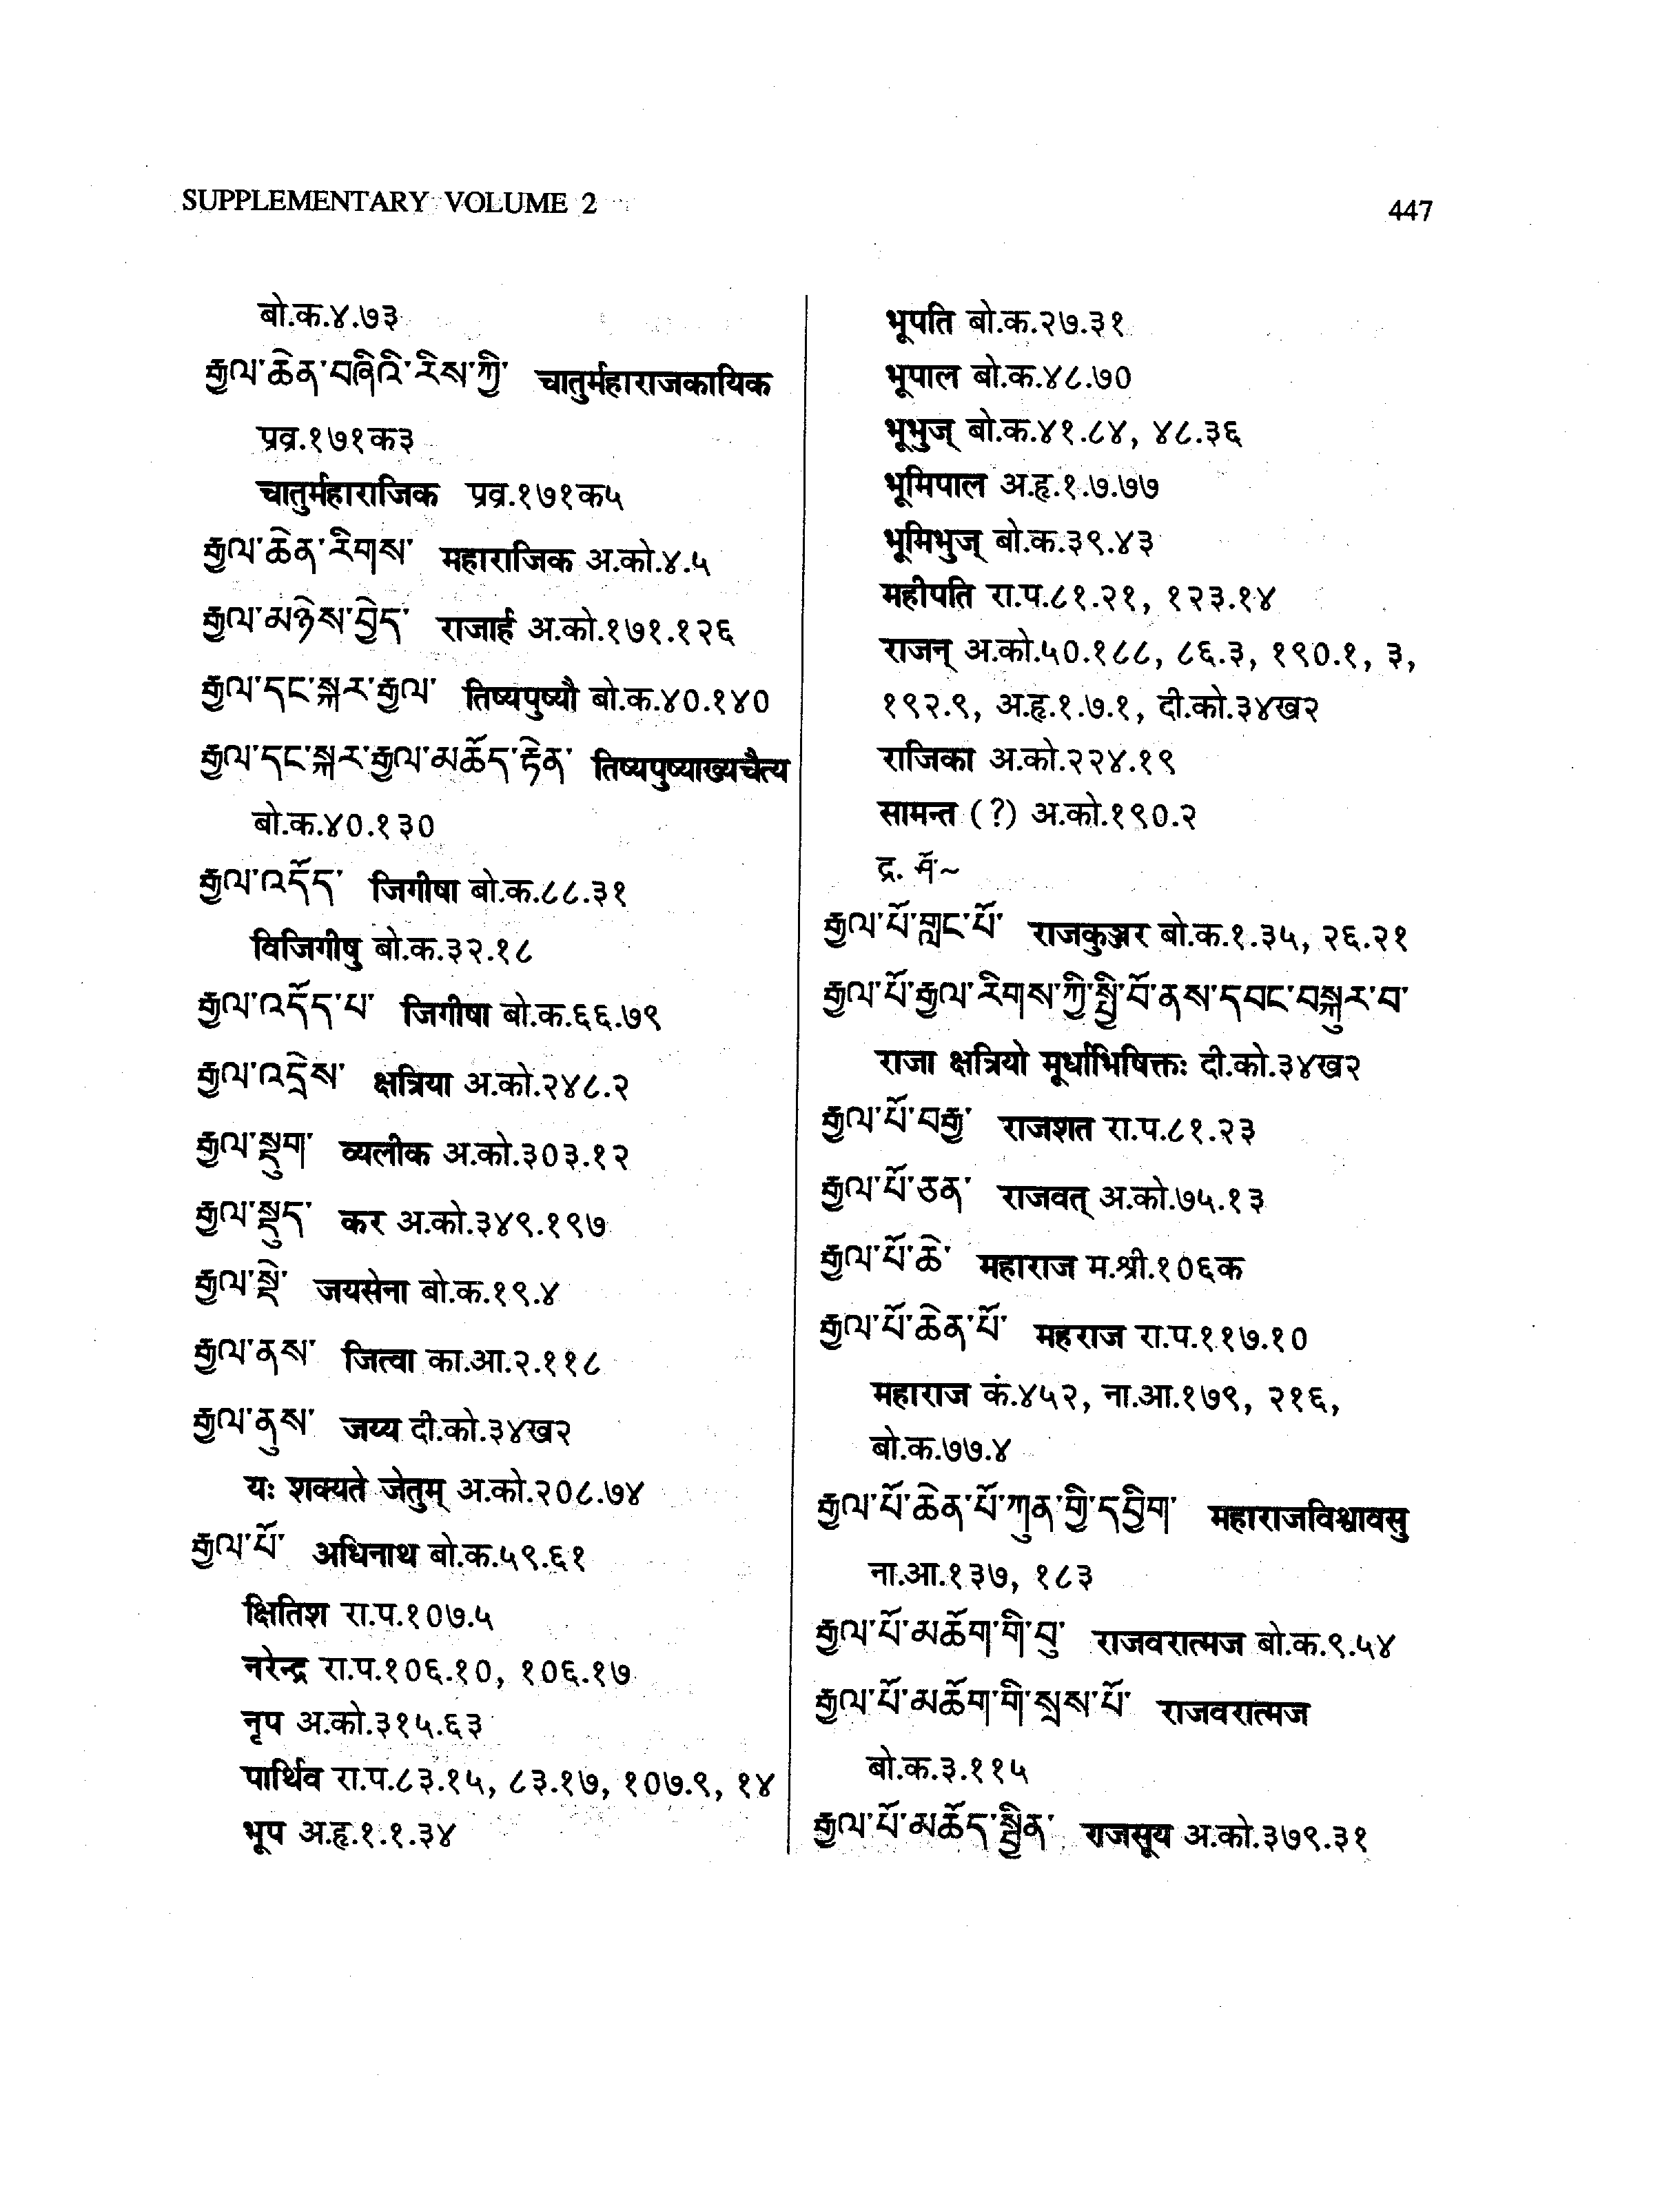 SUPPLEMENTARY VOLUME 2
447
बो.क.४.७३
རྒྱལ་ཆེན་བཞིའི་རིས་ཀྱི་ चातुर्महाराजकायिक
प्रव्र.१७१क३
चातुर्महाराजिक प्रव्र.१७१क५
རྒྱལ་ཆེན་རིགས་ महाराजिक अ.को.४.५
རྒྱལ་མཉེས་བྱེད་ राजार्ह अ.को.१७१.१२६
རྒྱལ་དང་སྐར་རྒྱལ་ तिष्यपुष्यौ बो.क.४०.१४०
རྒྱལ་དང་སྐར་རྒྱལ་མཆོད་རྟེན་ तिष्यपुष्याख्यचैत्य
बो.क.४०.१३०
རྒྱལ་འདོད་ जिगीषा बो.क.८८.३१
विजिगीषु बो.क.३२.१८
རྒྱལ་འདོད་པ་ जिगीषा बो.क.६६.७९
རྒྱལ་འདྲེས་ क्षत्रिया अ.को.२४८.२
རྒྱལ་སྡུག་ व्यलीक अ.को.३०३.१२
རྒྱལ་སྡུད་ कर अ.को.३४९.१९७
རྒྱལ་སྡེ་ जयसेना बो.क.१९.४
རྒྱལ་ནས་ जित्वा का.आ.२.११८
རྒྱལ་ནུས་ जय्य दी.को.३४ख२
यः शक्यते जेतुम् अ.को.२०८.७४
རྒྱལ་པོ་ अधिनाथ बो.क.५९.६१
क्षितिश रा.प.१०७.५
नरेन्द्र रा.प.१०६.१०, १०६.१७
नृप अ.को.३१५.६३
पार्थिव रा.प.८३.१५, ८३.१७, १०७.९, १४
भूप अ.हृ.१.१.३४
भूपति बो.क.२७.३१
भूपाल बो.क.४८.७०
भूभुज् बो.क.४१.८४, ४८.३६
भूमिपाल अ.हृ.१.७.७७
भूमिभुज् बो.क.३९.४३
महीपति रा.प.८१.२१, १२३.१४
राजन् अ.को.५०.१८८, ८६.३, १९०.१, ३,
१९२.९, अ.हृ.१.७.१, दी.को.३४ख२
राजिका अ.को.२२४.१९
सामन्त (?) अ.को.१९०.२
द्र. ཤོ་~
རྒྱལ་པོ་གླང་པོ་ राजकुञ्जर बो.क.१.३५, २६.२१
རྒྱལ་པོ་རྒྱལ་རིགས་ཀྱི་སྤྱི་བོ་ནས་དབང་བསྐུར་བ་
राजा क्षत्रियो मूर्धाभिषिक्तः दी.को.३४ख२
རྒྱལ་པོ་བརྒྱ་ राजशत रा.प.८१.२३
རྒྱལ་པོ་ཅན་ राजवत् अ.को.७५.१३
རྒྱལ་པོ་ཆེ་ महाराज म.श्री.१०६क
རྒྱལ་པོ་ཆེན་པོ་ महराज रा.प.११७.१०
महाराज कं.४५२, ना.आ.१७९, २१६,
बो.क.७७.४
རྒྱལ་པོ་ཆེན་པོ་ཀུན་གྱི་དབྱིག་ महाराजविश्वावसु
ना.आ.१३७, १८३
རྒྱལ་པོ་མཆོག་གི་བུ་ राजवरात्मज बो.क.९.५४
རྒྱལ་པོ་མཆོག་གི་སྲས་པོ་ राजवरात्मज
बो.क.३.११५
རྒྱལ་པོ་མཆོད་སྦྱིན་ राजसूय अ.को.३७९.३१